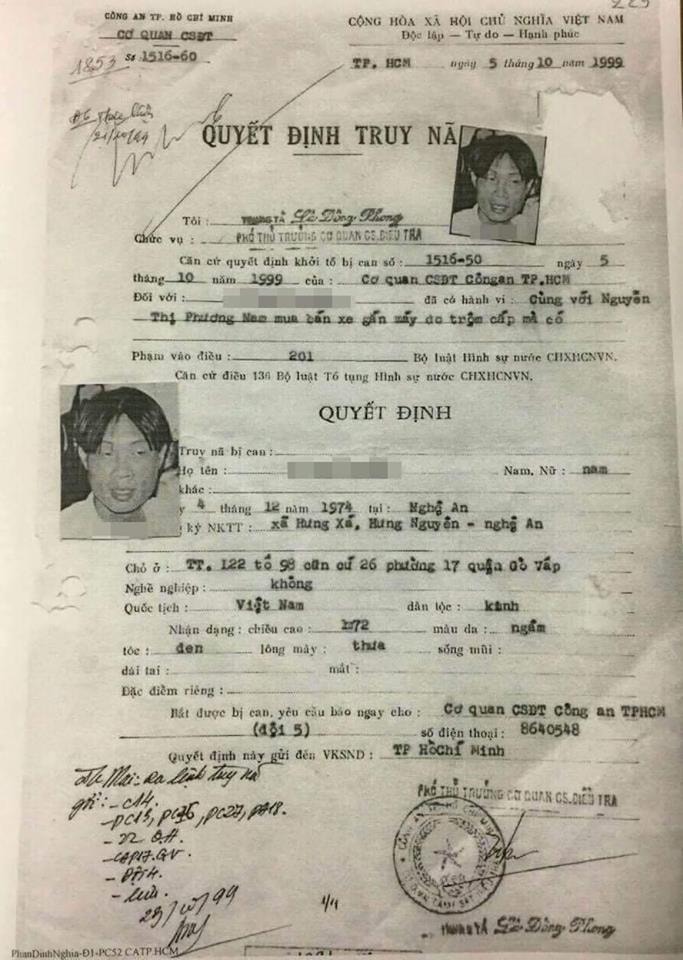 225
CÔNG AN TP. HỒ CHÍ MINH
CƠ QUAN CSĐT
Số 1516-60
1853
CỘNG HÒA XÃ HỘI CHỦ NGHĨA VIỆT NAM
Độc lập — Tự do — Hạnh phúc
TP. HCM ngày 5 tháng 10 năm 1999
QUYẾT ĐỊNH TRUY NÃ
Tôi : TRUNG TÁ Lê Đông Phong
Chức vụ : PHÓ THỦ TRƯỞNG CƠ QUAN CS. ĐIỀU TRA
Căn cứ quyết định khởi tố bị can số : 1516-50 ngày 5
tháng 10 năm 1999 của : Cơ quan CSĐT Côngan TP.HCM
Đối với : đã có hành vi : Cùng với Nguyễn
Thị Phương Nam mua bán xe gắn máy do trộm cắp mà có
Phạm vào điều : 201 Bộ luật Hình sự nước CHXHCNVN.
Căn cứ điều 136 Bộ luật Tố tụng Hình sự nước CHXHCNVN.
QUYẾT ĐỊNH
Truy nã bị can :
Họ tên : Nam, Nữ : nam
khác :
y 4 tháng 12 năm 1974 tại : Nghệ An
ký NKTT : xã Hưng Xá, Hưng Nguyên - nghệ An
Chỗ ở : TT. 122 tổ 98 căn cứ 26 phường 17 quận Gò Vấp
Nghề nghiệp : không
Quốc tịch : Việt Nam dân tộc : kinh
Nhận dạng : chiều cao : 1m72 màu da : ngăm
tóc : đen lông mày : thưa sống mũi :
dái tai : mắt :
Đặc điểm riêng :
Bắt được bị can, yêu cầu báo ngay cho : Cơ quan CSĐT Công an TPHCM
(đội 5) số điện thoại : 8640548
Quyết định này gửi đến VKSND : TP HồChí Minh
PHÓ THỦ TRƯỞNG CƠ QUAN CS. ĐIỀU TRA
ra lệnh truy nã
gửi : - C14
- PC13, PC16, PC27, PA18.
- 22 Q.H
- CAP17.GV
- Đội 4
- Lưu.
TRUNG TÁ Lê Đông Phong
PhanDinhNghia-Đ1-PC52 CATP.HCM